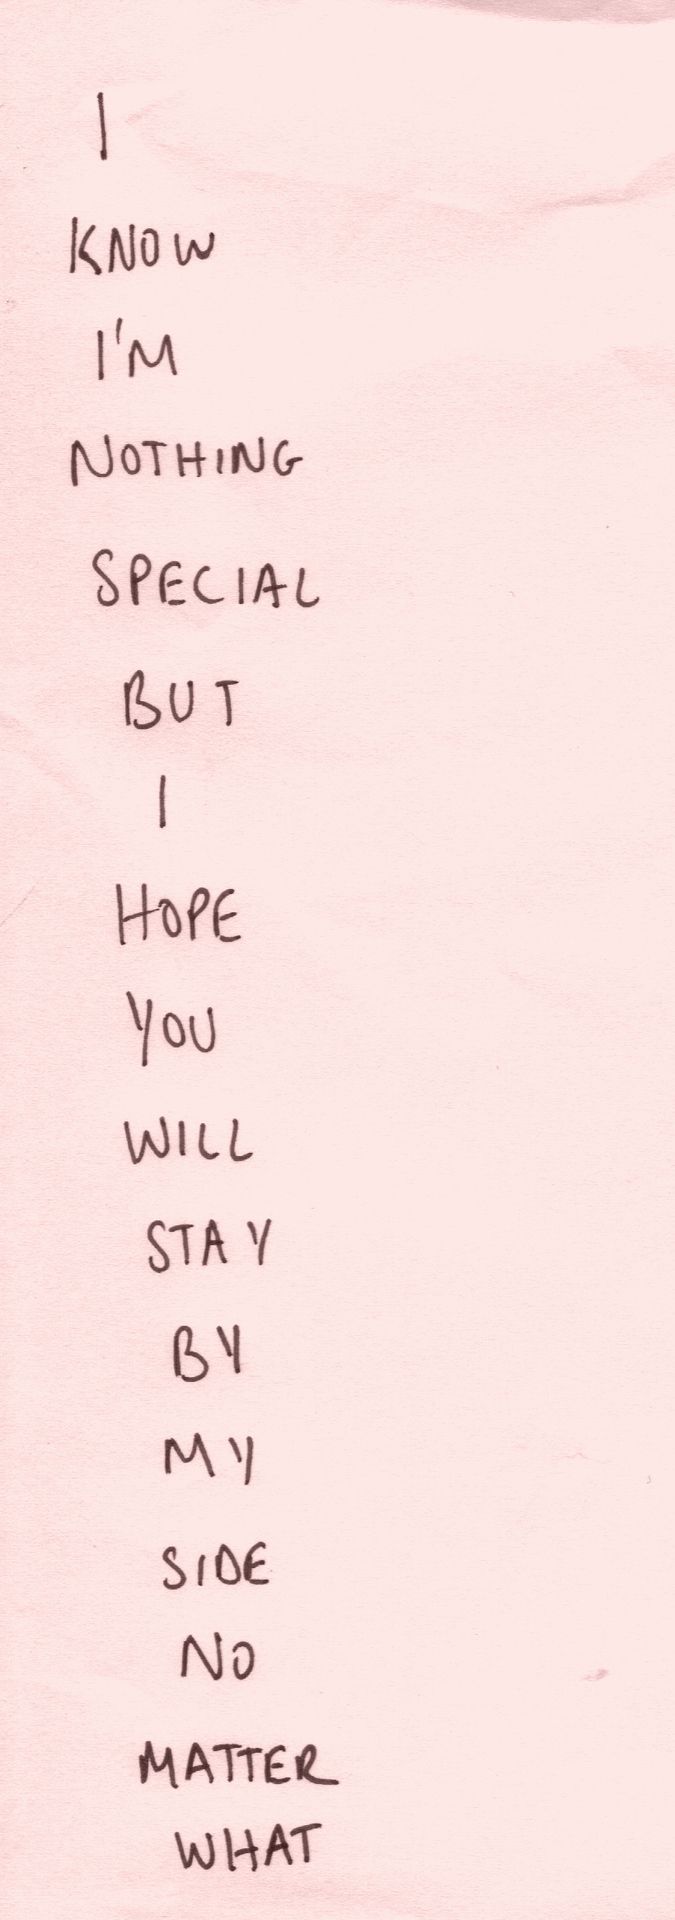 I
KNOW
I'M
NOTHING
SPECIAL
BUT
I
HOPE
YOU
WILL
STAY
BY
MY
SIDE
NO
MATTER
WHAT